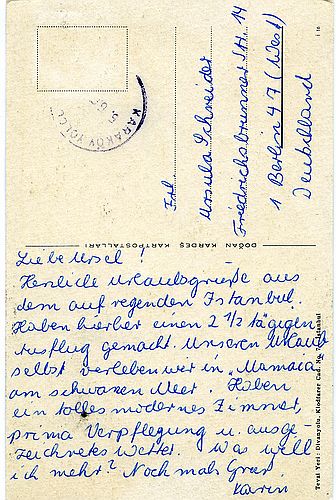 KARAKÖY YOLCU
Frl.
Ursula Schneider
Friedrichsbrunner Str. 14
1 Berlin 47 (West)
Deutschland
DOĞAN KARDEŞ KARTPOSTALLARI
Liebe Ursel!
Herzliche Urlaubsgrüße aus
dem aufregenden Istanbul.
Haben hierher einen 2 1/2 tägigen
Ausflug gemacht. Unseren Urlaub
selbst verleben wir in „Mamaia
am schwarzen Meer. Haben
ein tolles modernes Zimmer,
prima Verpflegung u. ausge-
zeichnetes Wetter. Was will
ich mehr? Nochmals Gruß
Karin
Tevzi Yeri : Divanyolu, Klodfarer Cad. No. İstanbul